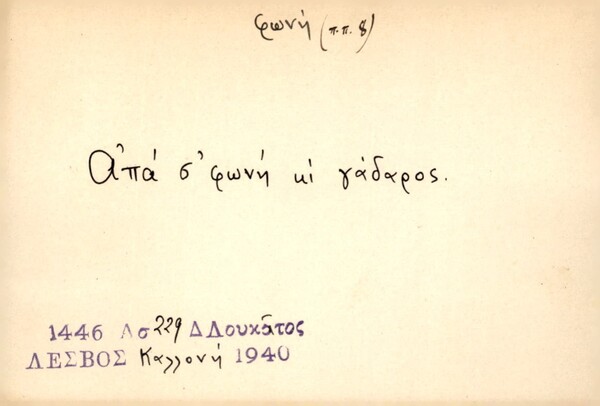 φωνή (π.π. 8)
Ἀπά σ' φωνή κι γάδαρος.
1446 Λσ 229 ΔΛουκᾶτος
ΛΕΣΒΟΣ Καλλονή 1940